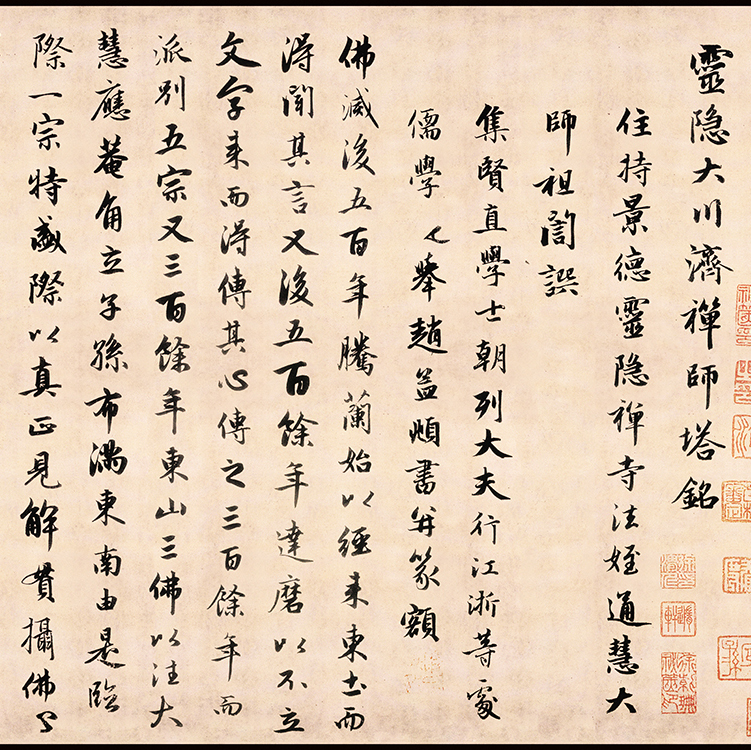 靈隐大川濟禪師塔銘
住持景德靈隐禅寺法姪通慧大
師祖誾譔
集賢直學士朝列大夫行江浙等處
儒學舉趙孟頫書并篆額
佛滅後五百年騰蘭始以經来東土而
得聞其言又後五百餘年達磨以不立
文字来而得傳其心傳之三百餘年而
派别五宗又三百餘年東山三佛以法大
慧應菴角立子孫布滿東南由是臨
際一宗特盛際以真正見解貫攝佛々